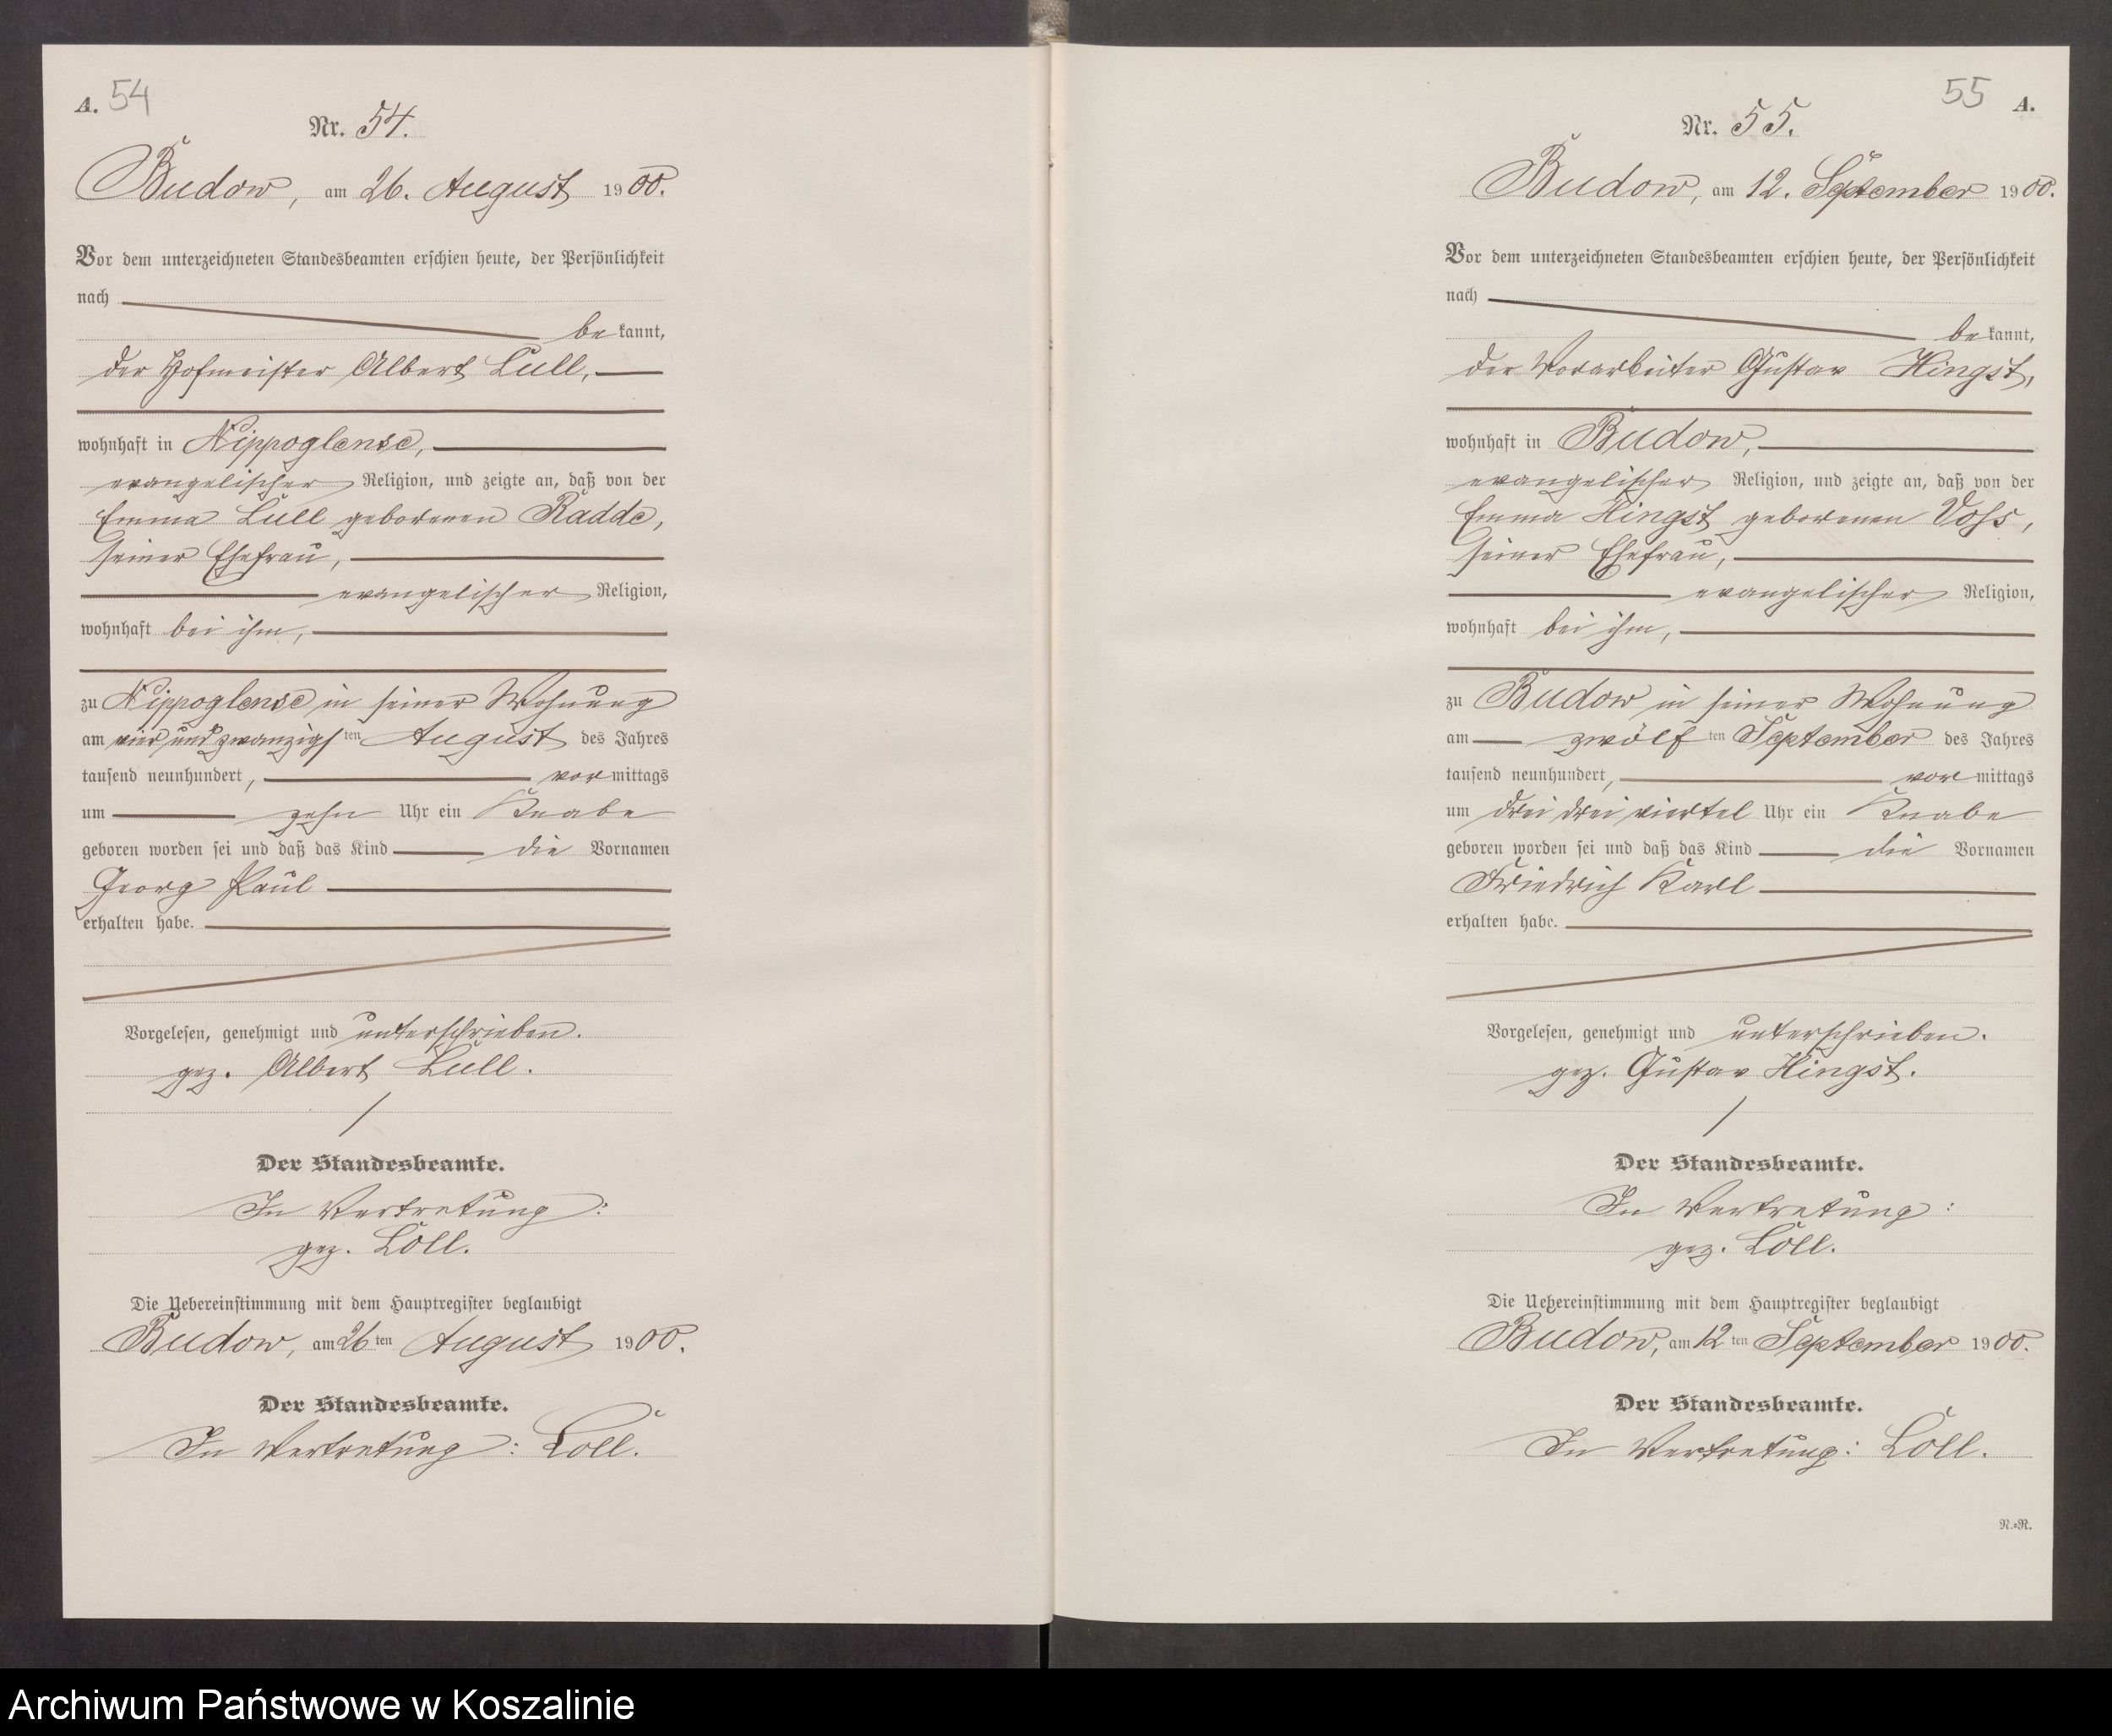 A. 54
Nr. 54.
Budow, am 26. August 1900.
Vor dem unterzeichneten Standesbeamten erschien heute, der Persönlichkeit
nach
bekannt,
der Hofmeister Albert Lüll,
wohnhaft in Nippoglense,
evangelischer Religion, und zeigte an, daß von der
Emma Lüll geborenen Radde,
seiner Ehefrau,
evangelischer Religion,
wohnhaft bei ihm,
zu Nippoglense in seiner Wohnung
am vier und zwanzigsten August des Jahres
tausend neunhundert, vormittags
um zehn Uhr ein Knabe
geboren worden sei und daß das Kind die Vornamen
Georg Paul
erhalten habe.
Vorgelesen, genehmigt und unterschrieben.
gez. Albert Lüll.
Der Standesbeamte.
In Vertretung:
gez. Löll.
Die Uebereinstimmung mit dem Hauptregister beglaubigt
Budow, am 26ten August 1900.
Der Standesbeamte.
In Vertretung: Löll.
55 A.
Nr. 55.
Budow, am 12. September 1900.
Vor dem unterzeichneten Standesbeamten erschien heute, der Persönlichkeit
nach
bekannt,
der Vorarbeiter Gustav Hingst,
wohnhaft in Budow,
evangelischer Religion, und zeigte an, daß von der
Emma Hingst geborenen Voss,
seiner Ehefrau,
evangelischer Religion,
wohnhaft bei ihm,
zu Budow in seiner Wohnung
am zwölften September des Jahres
tausend neunhundert, vormittags
um drei drei viertel Uhr ein Knabe
geboren worden sei und daß das Kind die Vornamen
Friedrich Karl
erhalten habe.
Vorgelesen, genehmigt und unterschrieben.
gez. Gustav Hingst.
Der Standesbeamte.
In Vertretung:
gez. Löll.
Die Uebereinstimmung mit dem Hauptregister beglaubigt
Budow, am 12ten September 1900.
Der Standesbeamte.
In Vertretung: Löll.
R.=R.
Archiwum Państwowe w Koszalinie